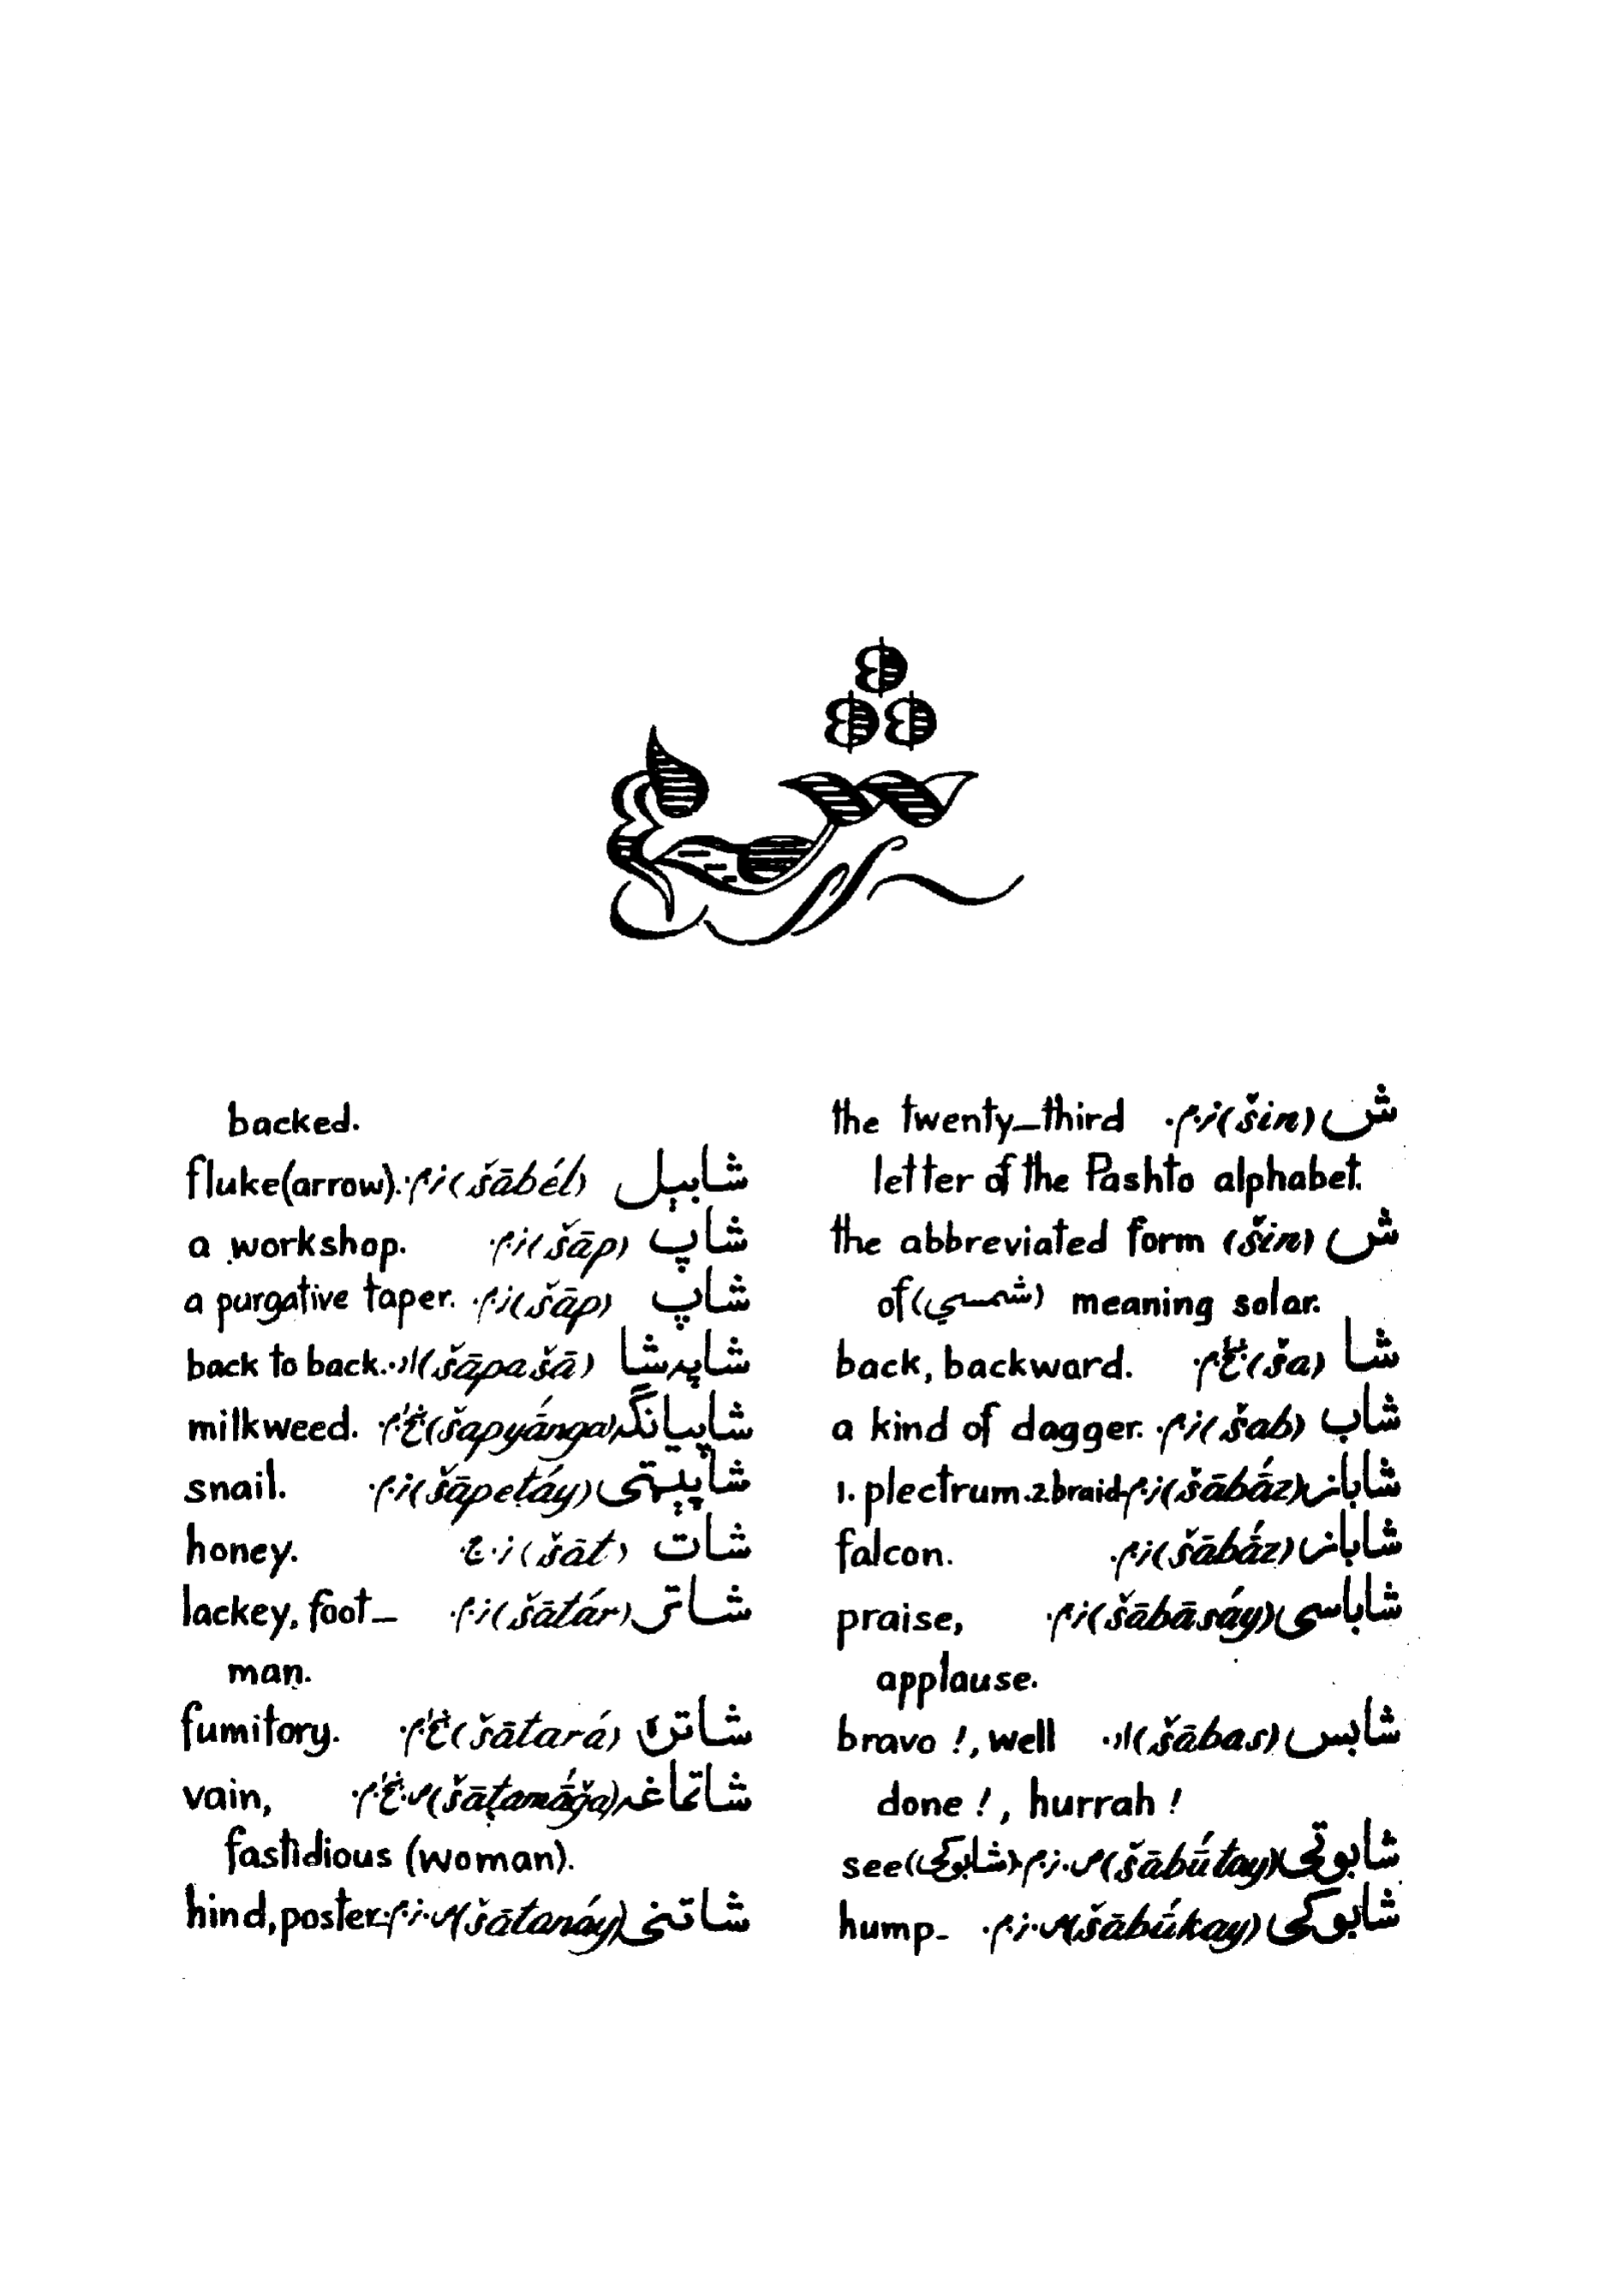 ش
ش (šin) ن.م. the twenty-third
letter of the Pashto alphabet.
ش (šin) the abbreviated form
of (شمسي) meaning solar.
شا (ša) back, backward.
شاب (šab) ن.م. a kind of dagger.
شاباز (šābā́z) ن.م. 1. plectrum. 2. braid
شاباز (šābā́z) ن.م. falcon.
شاباسی (šābāsáy) ن.م. praise,
applause.
شابس (šābas) اد. bravo !, well
done !, hurrah !
شابوتی (šābū́tay) ص.ن.م. see (شابوکی)
شابوکی (šābū́kay) ص.ن.م. hump-
backed.
شابېل (šābél) ن.م. fluke (arrow).
شاپ (šāp) ن.م. a workshop.
شاپ (šāp) ن.م. a purgative taper.
شاپه‌شا (šāpašā) اد. back to back.
شاپیانګه (šapyā́nga) milkweed.
شاپېټی (šāpeṭáy) ن.م. snail.
شات (šāt) ن.ج. honey.
شاتر (šātár) ن.م. lackey, foot-
man.
شاتره (šātará) fumitory.
شاتماغه (šāṭamā́ğa) vain,
fastidious (woman).
شاتنی (šātanáy) ص.ن.م. hind, poster.